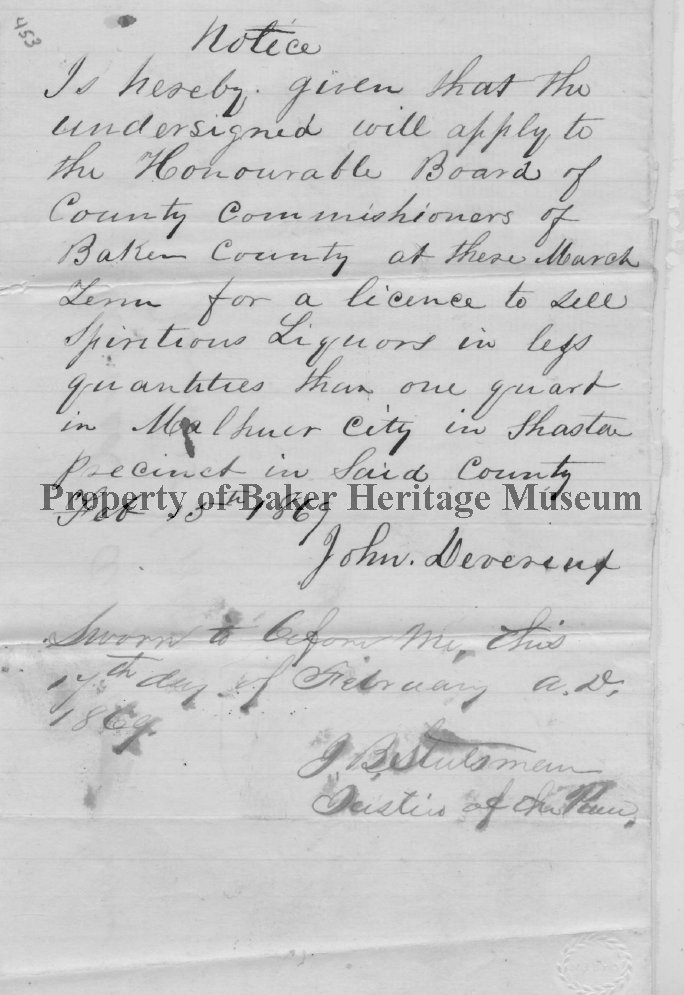 453
Notice
Is hereby given that the
undersigned will apply to
the Honourable Board of
County Commishioners of
Baker County at these March
Term for a licence to sell
Spiritious Liquors in less
quantities than one quart
in Malhuer City in Shasta
Precinct in Said County
Property of Baker Heritage Museum
Feb 15th 1869
John. Devereux
Sworn to before me, this
17th day of February A.D.
1869
J B Stulsman
Justice of the Peace,